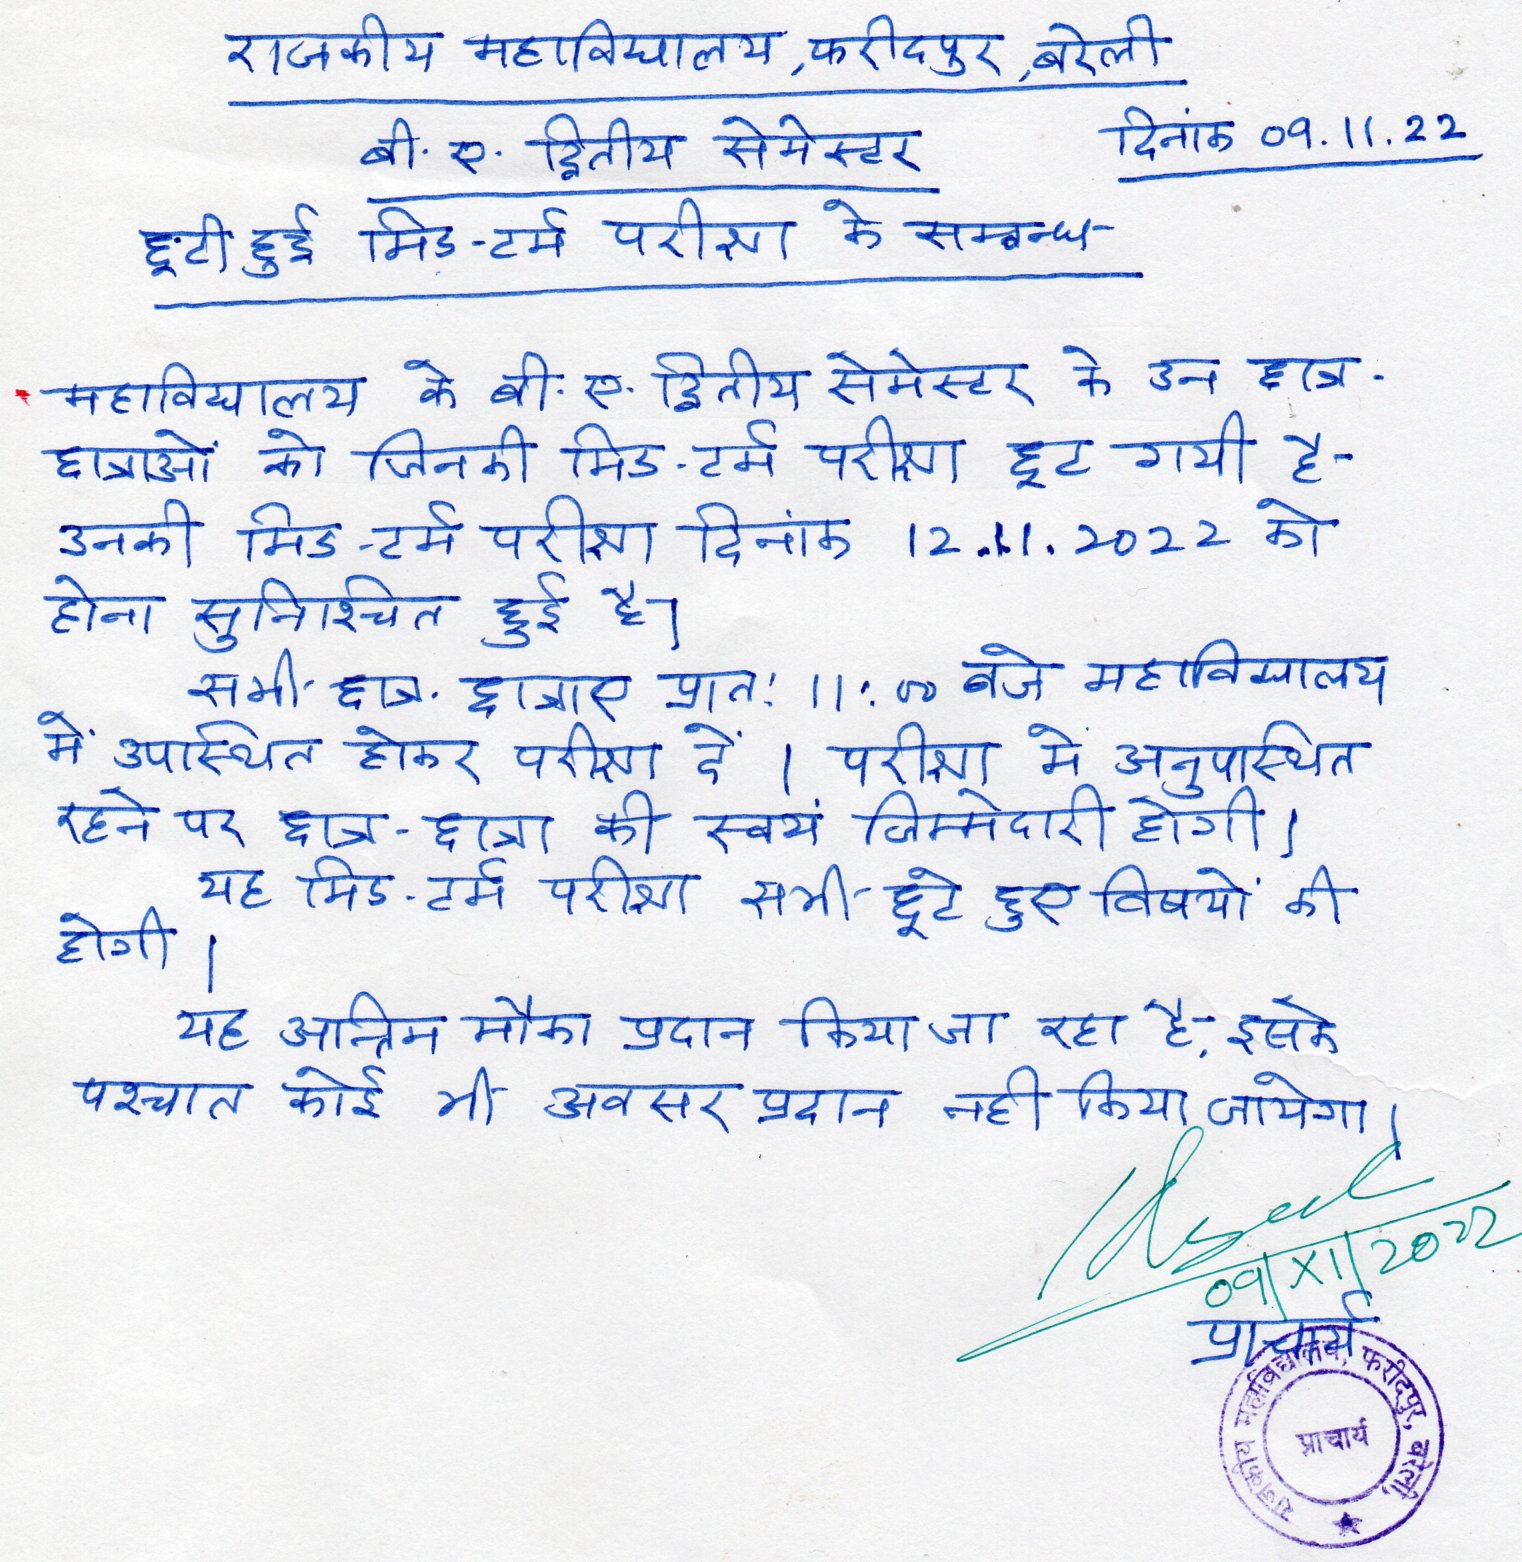 राजकीय महाविद्यालय, फरीदपुर, बरेली
बी. ए. द्वितीय सेमेस्टर
दिनांक 09.11.22
छूटी हुई मिड-टर्म परीक्षा के सम्बन्ध-
महाविद्यालय के बी. ए. द्वितीय सेमेस्टर के उन छात्र-
छात्राओं को जिनकी मिड-टर्म परीक्षा छूट गयी है-
उनकी मिड-टर्म परीक्षा दिनांक 12.11.2022 को
होना सुनिश्चित हुई है।
सभी छात्र-छात्राए प्रातः 11:00 बजे महाविद्यालय
में उपस्थित होकर परीक्षा दें। परीक्षा में अनुपास्थित
रहने पर छात्र-छात्रा की स्वयं जिम्मेदारी होगी।
यह मिड-टर्म परीक्षा सभी छूटे हुए विषयों की
होगी।
यह अन्तिम मौका प्रदान किया जा रहा है, इसके
पश्चात कोई भी अवसर प्रदान नही किया जायेगा।
09/XI/2022
प्राचार्य
राजकीय महाविद्यालय, फरीदपुर, बरेली
प्राचार्य